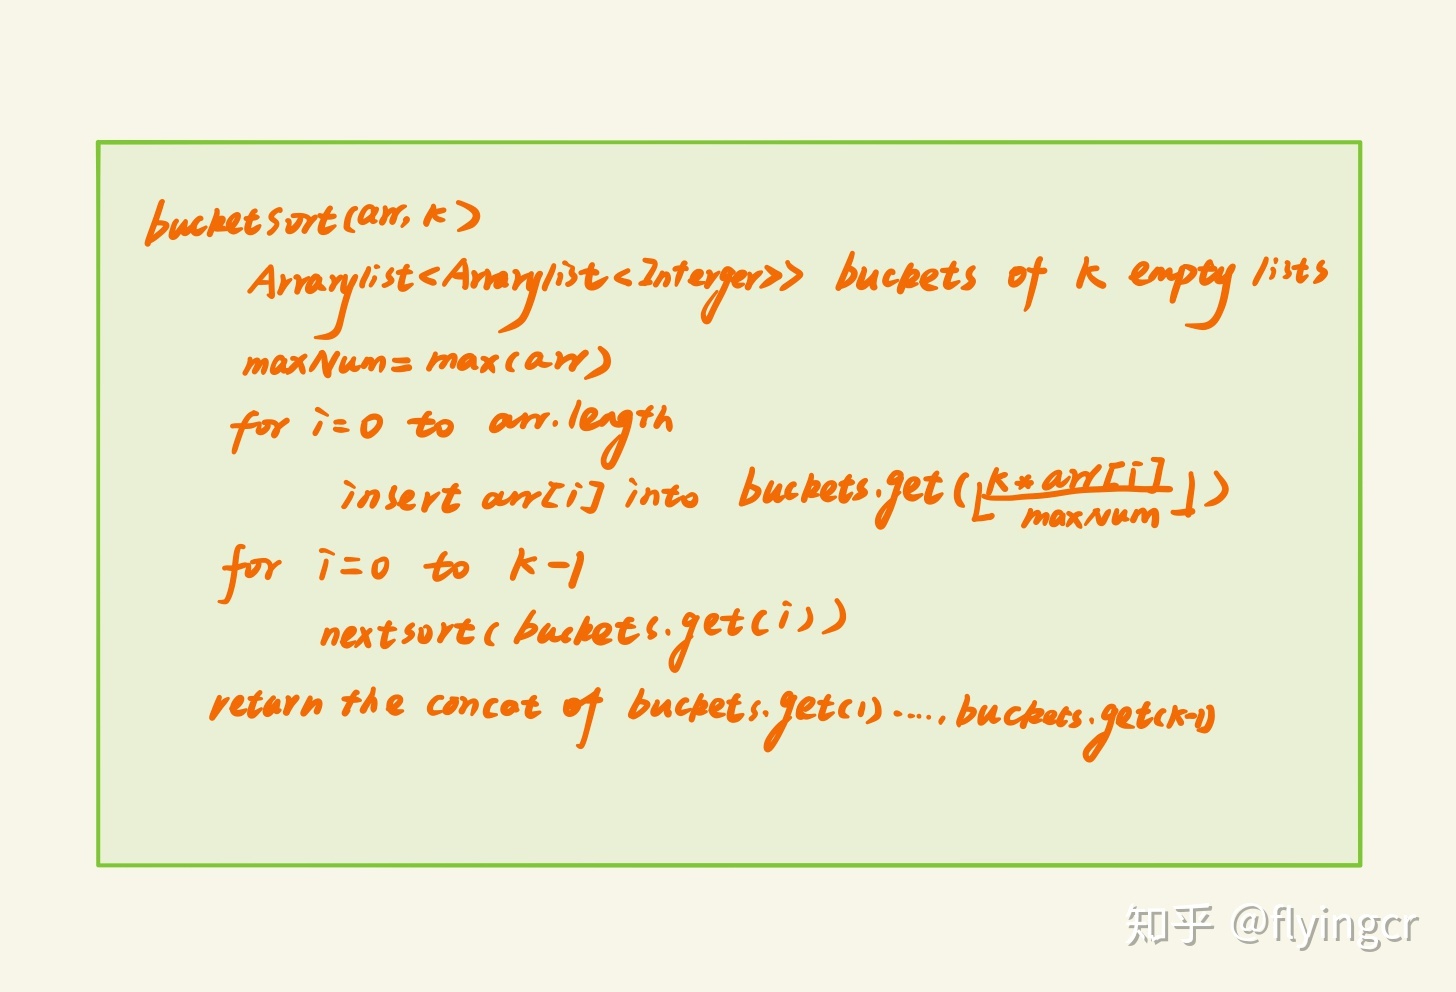 bucketsort(arr, k)
Arrarylist<Arrarylist<Interger>> buckets of k empty lists
maxNum = max(arr)
for i=0 to arr.length
insert arr[i] into buckets.get(⌊k*arr[i]/maxNum⌋)
for i=0 to k-1
nextsort(buckets.get(i))
return the concat of buckets.get(1)....,buckets.get(k-1)
知乎 @flyingcr